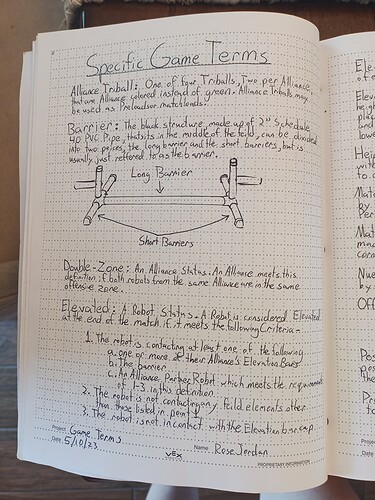 Specific Game Terms
Alliance Triball: One of four Triballs, Two per Alliance,
that are Alliance colored instead of green. Alliance Triballs may
be used as Preloads or matchloads.
Barrier: The black structure, made up of 2" Schedule
40 PVC Pipe, that sits in the middle of the field, can be divided
into two peices, the long barrier and the short barriers, but is
usually just reffered to as the barrier.
Long Barrier
Short Barriers
Double-Zone: An Alliance Status. An Alliance meets this
definition if both robots from the same Alliance are in the same
offensive zone.
Elevated: A Robot Status - A Robot is considered Elevated
at the end of the match if it meets the following Criteria-
1. The robot is contacting at least one of the following
a. one or more of their Alliance's Elevation Bars
b. The barrier
c. An Alliance Partner Robot which meets the requirements
of 1-3 in this definition.
2. The robot is not contacting any feild elements other
than those listed in point 1
3. The robot is not in contact with the Elevation bar cap
Project Game Terms
Name Rose Jordan
Date 5/10/23
VEX
PROPRIETARY INFORMATION
Ele
of
Elev
Hei
Mat
by
Per
Mat
Nu
by
Off
Pos